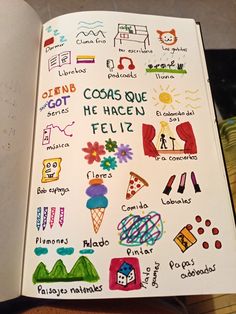 COSAS
Dormir
Clima frio
mi escritorio
Los gatitos
Libretas
podcasts
lluvia
OITNB
GOT
series
COSAS QUE
ME HACEN
FELIZ
El calor del
sol
música
Ir a conciertos
Bob esponja
Flores
Comida
Labiales
Plumones
Helado
Pintar
Papas
adobadas
Paisajes naturales
games